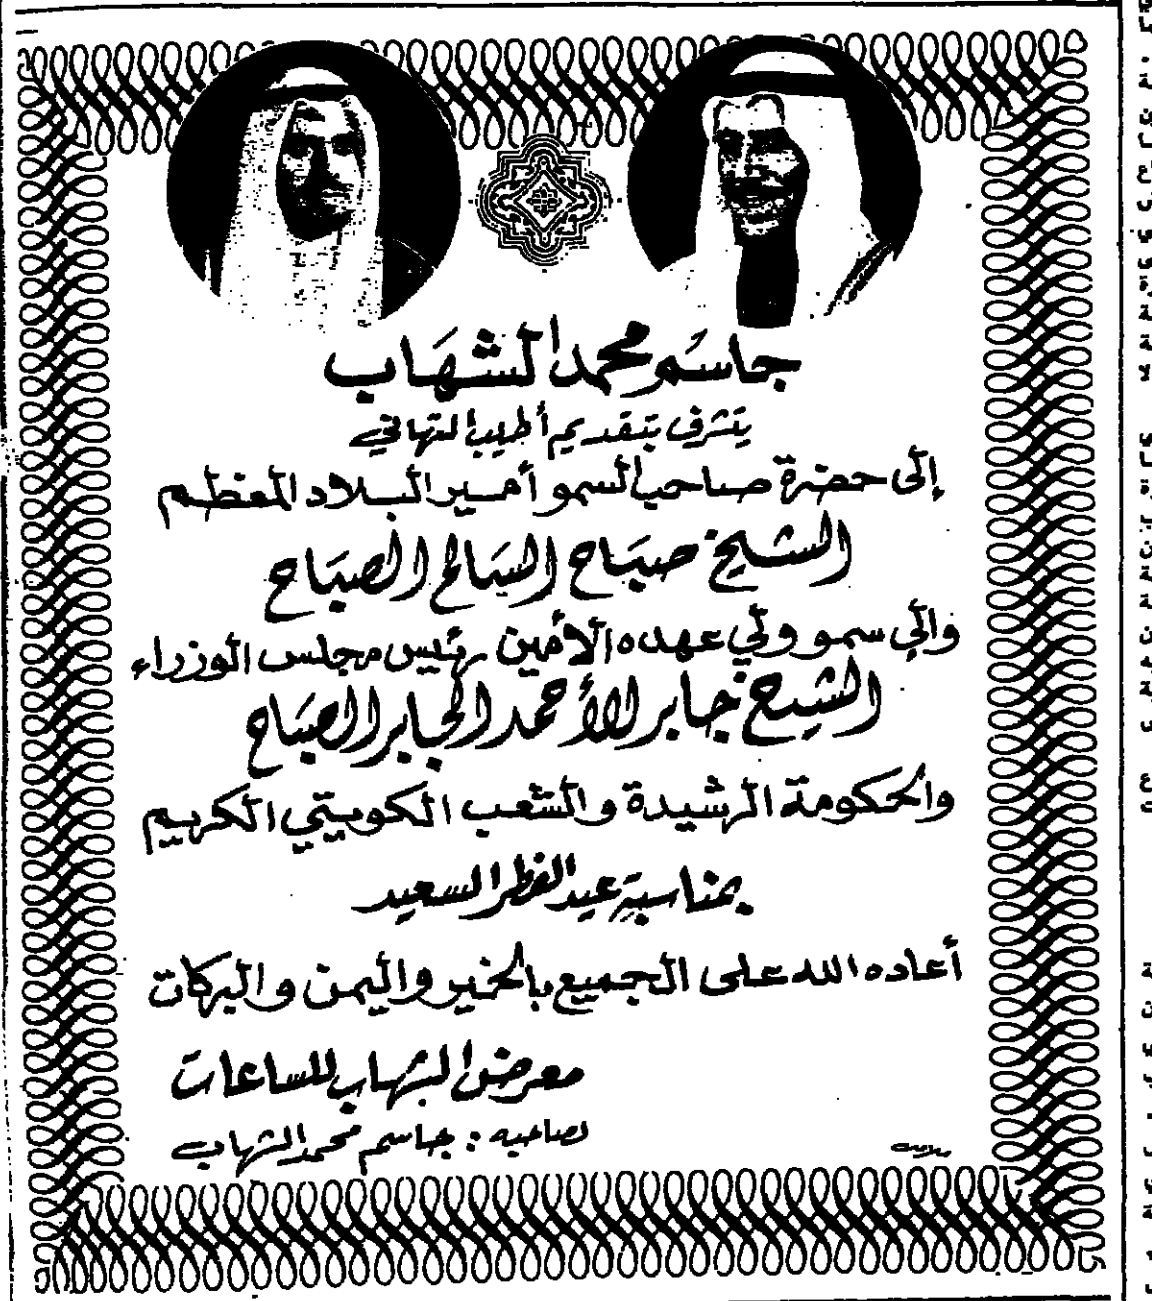 جاسم محمد الشهاب
يتشرف بتقديم أطيب التهاني
إلى حضرة صاحب السمو أمير البلاد المعظم
الشيخ صباح السالم الصباح
والى سمو ولي عهده الأمين رئيس مجلس الوزراء
الشيخ جابر الأحمد الجابر الصباح
والحكومة الرشيدة والشعب الكويتي الكريم
بمناسبة عيد الفطر السعيد
أعاده الله على الجميع بالخير واليمن والبركات
معرض الشهاب للساعات
لصاحبه : جاسم محمد الشهاب